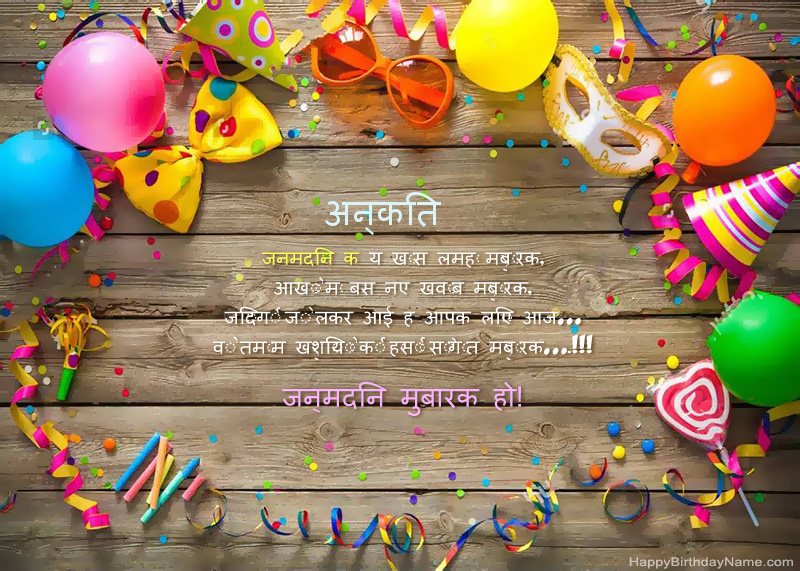 अन्कति
जनमदनि क य खास लमहा मबारक,
आखोमा बस नए खवाब मबारक,
जदिगी जो लेकर आई ह आपक लएि आज...
वो तमाम खशयिोकी हसी सागात मबारक...!!!
जन्मदनि मुबारक हो!
HappyBirthdayName.com